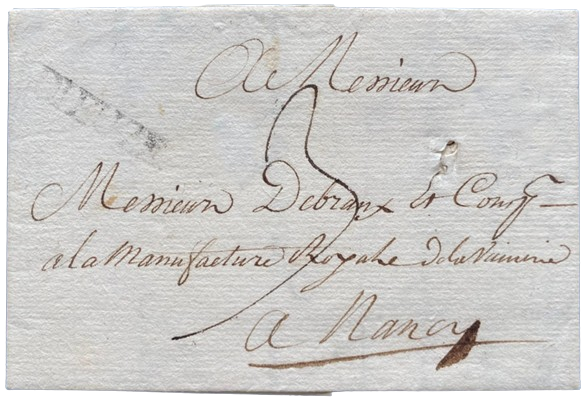 A Messieurs
Messieurs Debraux Et Comp
a la Manufacture Royale de la
a Nancy
3